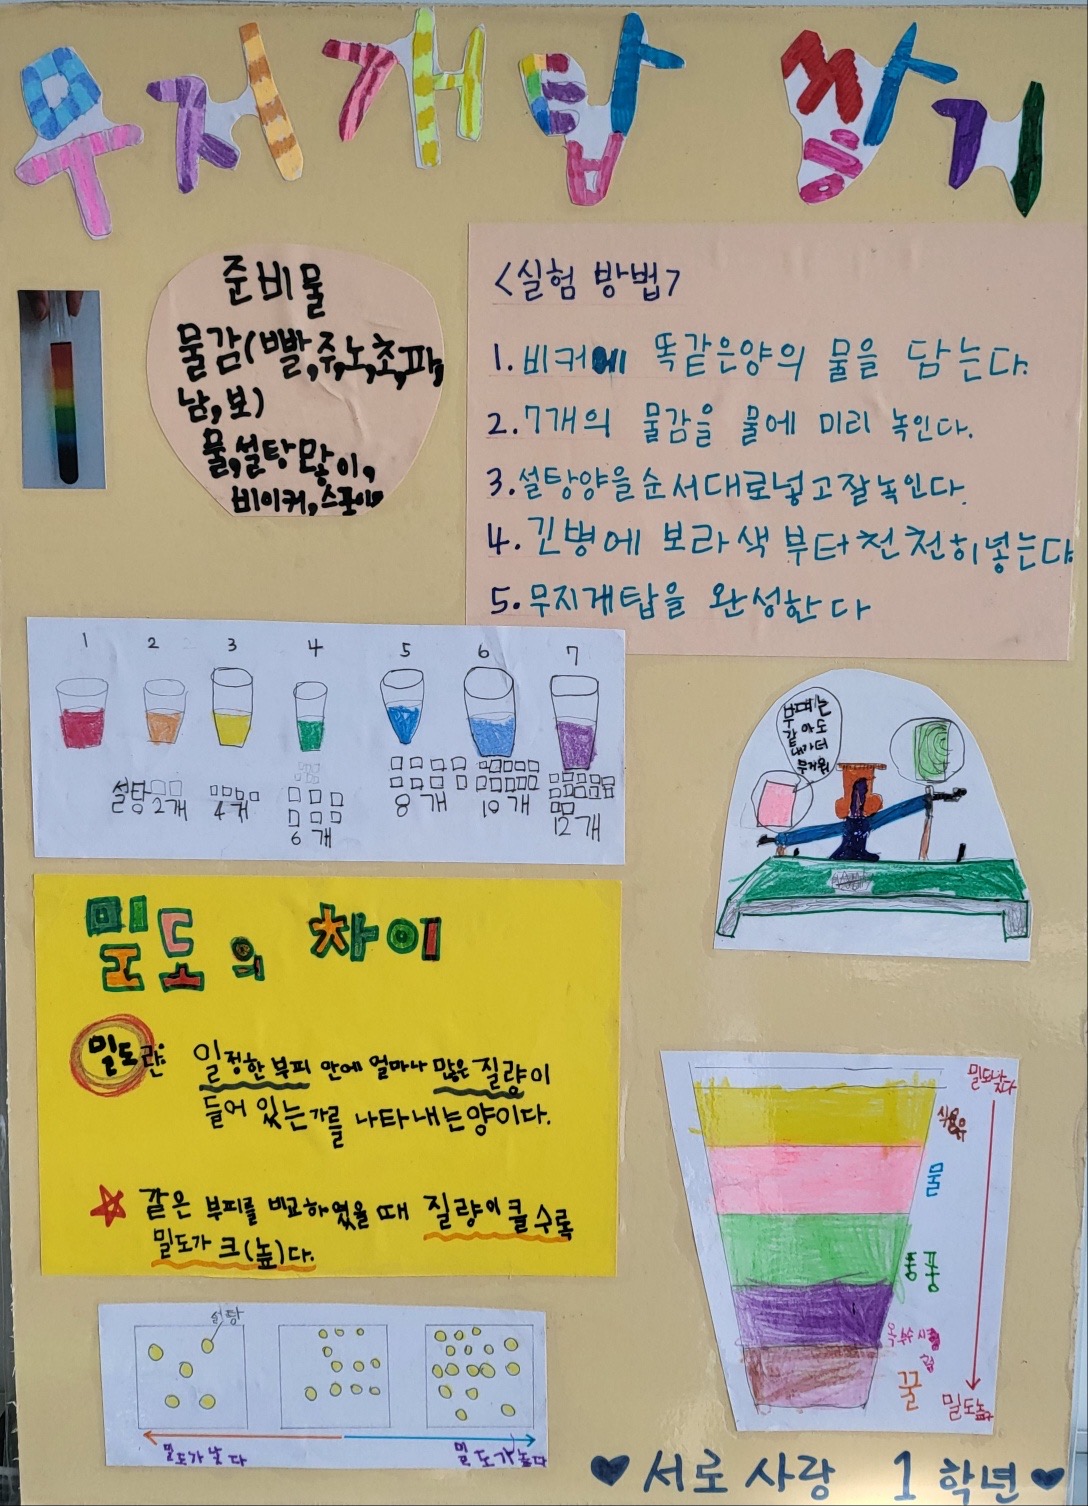 무지개탑 쌓기
준비물
물감(빨,주,노,초,파,
남,보)
물,설탕많이,
비이커,스포이드
<실험 방법>
1. 비커에 똑같은양의 물을 담는다.
2. 7개의 물감을 물에 미리 녹인다.
3. 설탕양을순서대로넣고잘녹인다.
4. 긴병에 보라색부터천천히넣는다
5. 무지개탑을 완성한다
1 2 3 4 5 6 7
설탕 2개 4개 6개 8개 10개 12개
부피는
같아도
내가더
무거워
밀도의 차이
밀도란 일정한 부피 안에 얼마나 많은 질량이
들어 있는가를 나타내는양이다.
☆ 같은 부피를 비교하였을 때 질량이클수록
밀도가 크(높)다.
설탕
밀도가 낮다 밀도가높다
밀도낮다
식용유
물
퐁퐁
옥수수시럽
꿀
밀도높다
♥ 서로 사랑 1학년 ♥